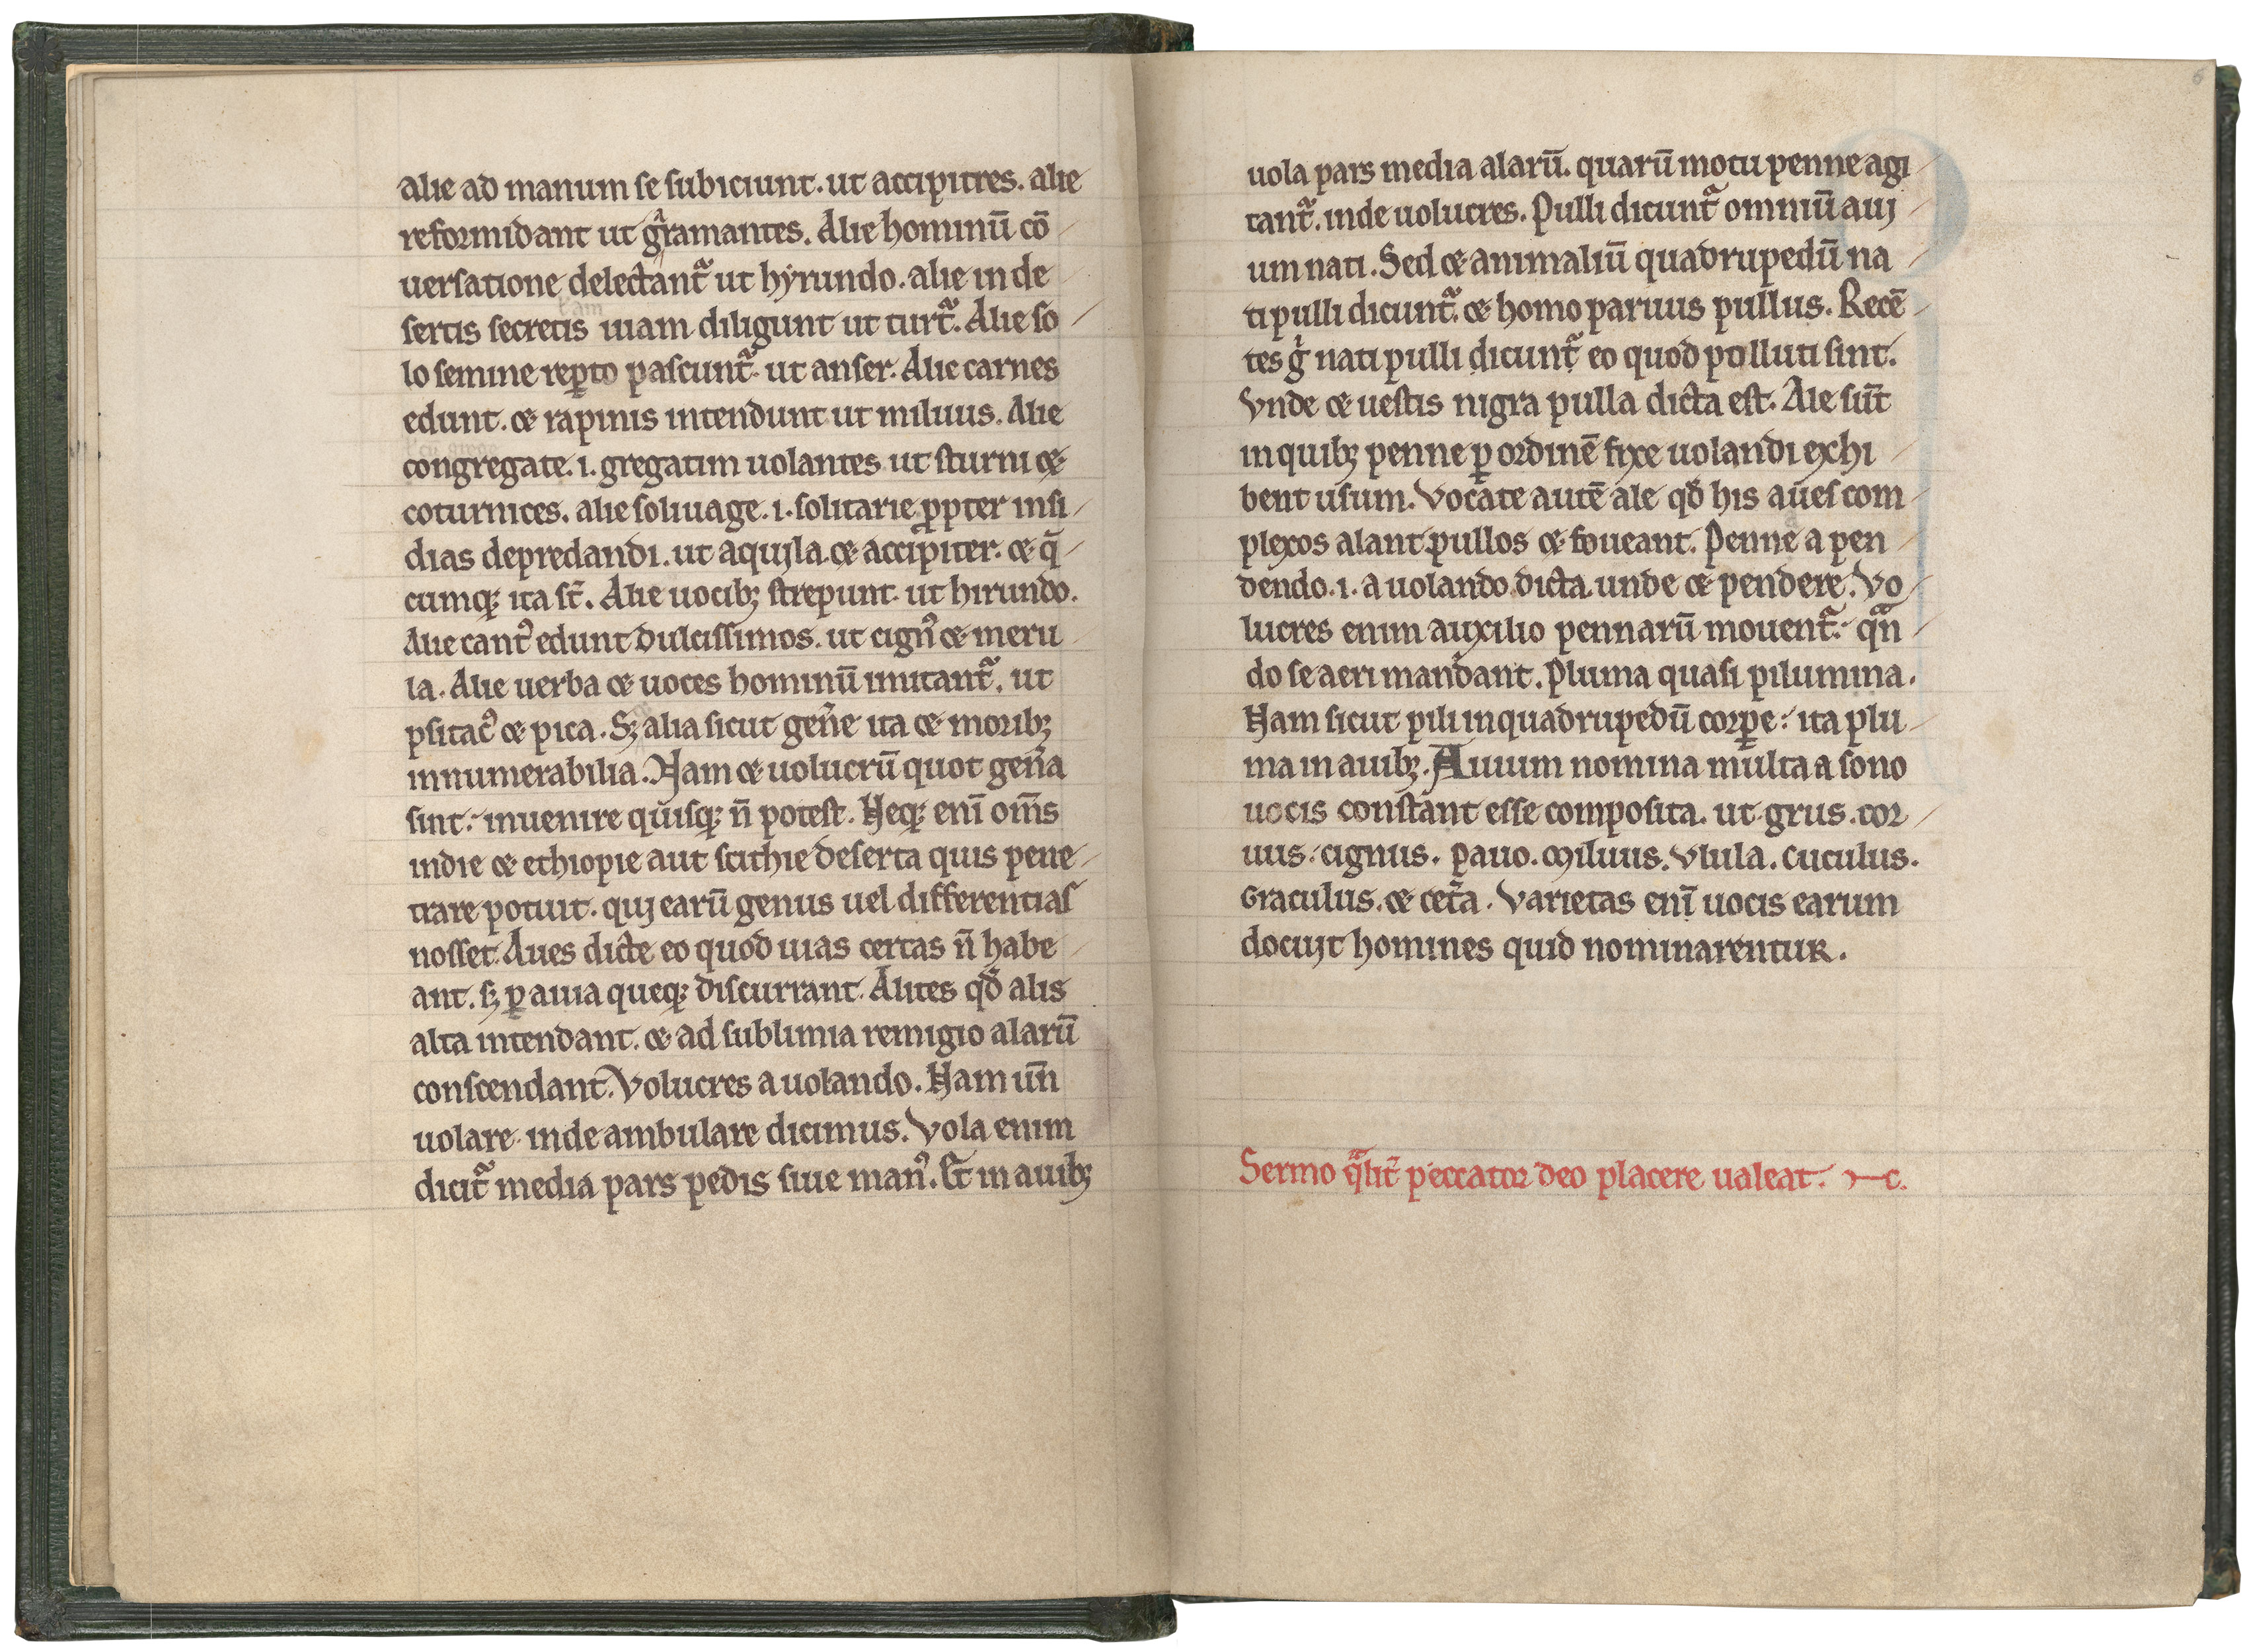 alie ad manum se subiciunt. ut accipitres. alie
reformidant ut gͣramantes. Alie hominū cō
uersatione delectantᷓ ut hẏrundo. alie in de
sertis secretis uiam diligunt ut turtᷓ. Alie so
lo semine reꝑto pascuntᷓ. ut anser. Alie carnes
edunt. ⁊ rapinis intendunt ut miluus. Alie
congregate .i. gregatim uolantes ut sturni ⁊
coturnices. alie soliuage .i. solitarie ꝓpter insi
dias depredandi. ut aquila ⁊ accipiter. ⁊ q̄
cumqꝫ ita st̄. Alie uocibꝫ strepunt ut hirundo.
Alie cantꝰ edunt dulcissimos. ut cignꝰ ⁊ meru
la. Alie uerba ⁊ uoces hominū imitantᷓ. ut
psitacꝰ ⁊ pica. Sꝫ alia sicut gen̄e ita ⁊ moribꝫ
innumerabilia. Nam ⁊ uolucrū quot gen̄a
sint. inuenire quisqꝫ n̄ potest. Neqꝫ enī om̄s
indie ⁊ ethiopie aut scithie deserta quis pene
trare potuit. qui earū genus uel differentias
nosset. Aues dicte eo quod uias certas n̄ habe
ant. sꝫ ꝑ auia queqꝫ discurrant. Alites qđ alis
alta intendant. ⁊ ad sublimia remigio alarū
conscendant. Volucres a uolando. Nam un̄
uolare inde ambulare dicimus. Vola enim
dicitᷓ media pars pedis siue manꝰ. Et in auibꝫ
uola pars media alarū. quarū motu penne agi
tantᷓ. inde uolucres. Pulli dicuntᷓ omniū aui
um nati. Sed ⁊ animaliū quadrupedū na
ti pulli dicuntᷓ. ⁊ homo paruus pullus. Recē
tes gͥ nati pulli dicuntᷓ eo quod polluti sint.
Vnde ⁊ uestis nigra pulla dicta est. Ale sūt
in quibꝫ penne ꝑ ordinē fixe uolandi exhi
bent usum. Vocate autē ale qđ his aues com
plexos alant pullos ⁊ foueant. Penne a pen
dendo .i. a uolando dicta. unde ⁊ pendere. Vo
lucres enim auxilio pennarū mouentᷓ. qᷓn
do se aeri mandant. Pluma quasi pilumina.
Nam sicut pili in quadrupedū corꝑe. ita plu
ma in auibꝫ. Auium nomina multa a sono
uocis constant esse composita. ut grus. cor
uus. cignus. pauo. Miluus. Vlula. Cuculus.
Graculus. ⁊ cet̄a. Varietas enī uocis earum
docuit homines quid nominarentur.
Sermo qᷓlit̄ peccator deo placere ualeat.
6